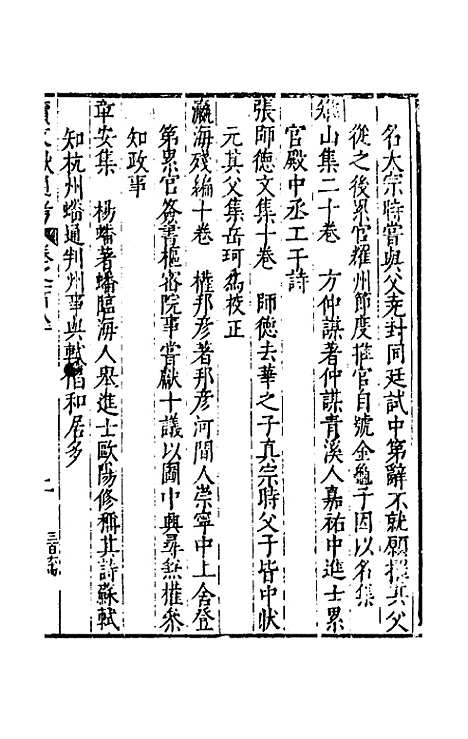 名太宗時嘗與父克封同廷試中第辭不就願擢其父
從之後累官耀州節度推官自號金龜子因以名集
山集二十卷　方仲謀著仲謀青溪人嘉祐中進士累
官殿中丞工于詩
張師德文集十卷　師德去華之子真宗時父子皆中狀
元其父集岳珂為校正
瀛海殘編十卷　權邦彥著邦彥河間人崇寧中上舍登
第累官簽書樞密院事嘗獻十議以圖中興尋兼權參
知政事
章安集　楊蟠著蟠臨海人舉進士歐陽修稱其詩蘇軾
知杭州蟠通判州事與軾倡和居多